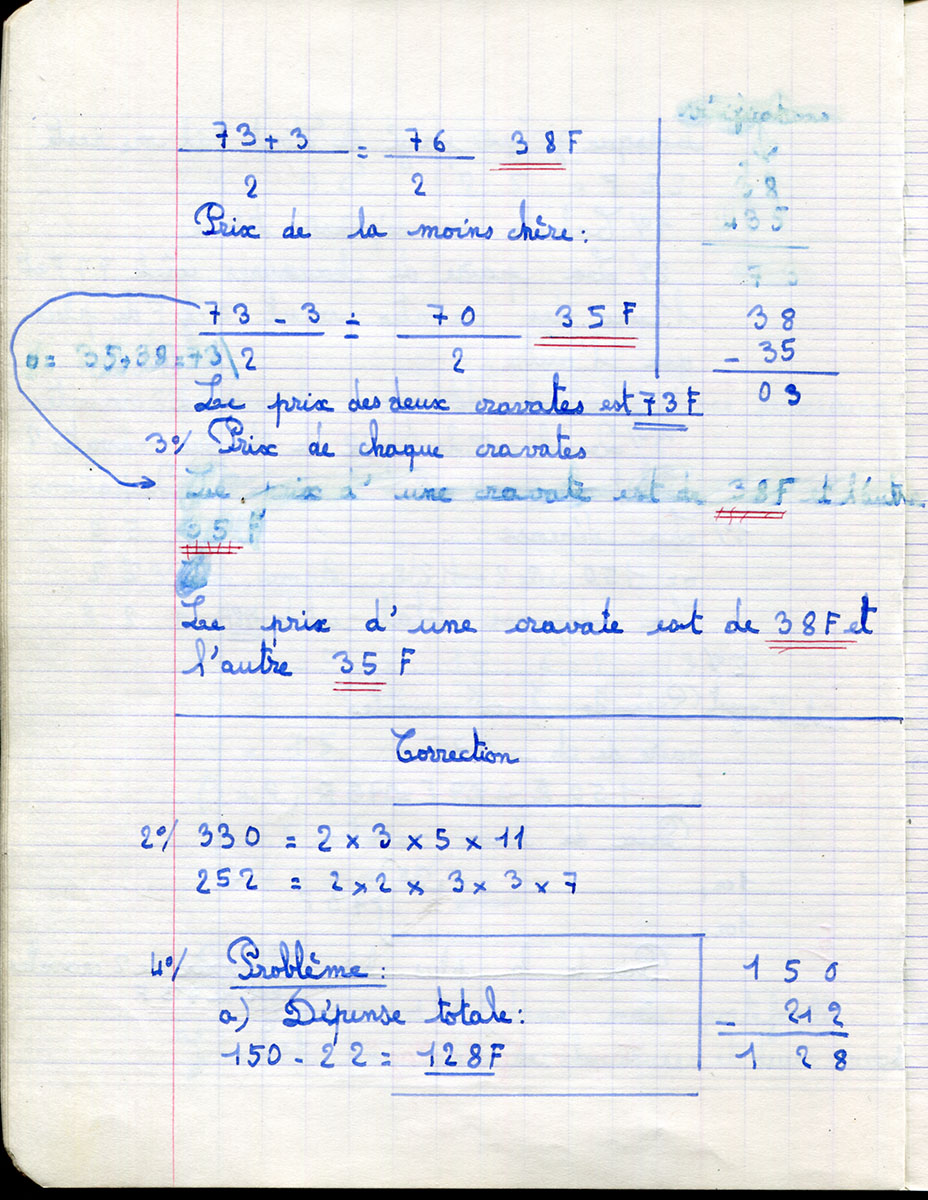 73+3 = 76 38F
2 2
Prix de la moins chère :
73 - 3 = 70 35 F
2 2
= 35+38=73/
Le prix des deux cravates est 73 F
3°/ Prix de chaque cravates
Le prix d'une cravate est de 38F l'autre
35 F
Le prix d'une cravate est de 38F et
l'autre 35 F
+35
38
- 35
03
Correction
2°/ 330 = 2 x 3 x 5 x 11
252 = 2 x 2 x 3 x 3 x 7
4°/ Problème :
a) Dépense totale :
150 - 22 = 128F
1 5 0
- 2 2
1 2 8